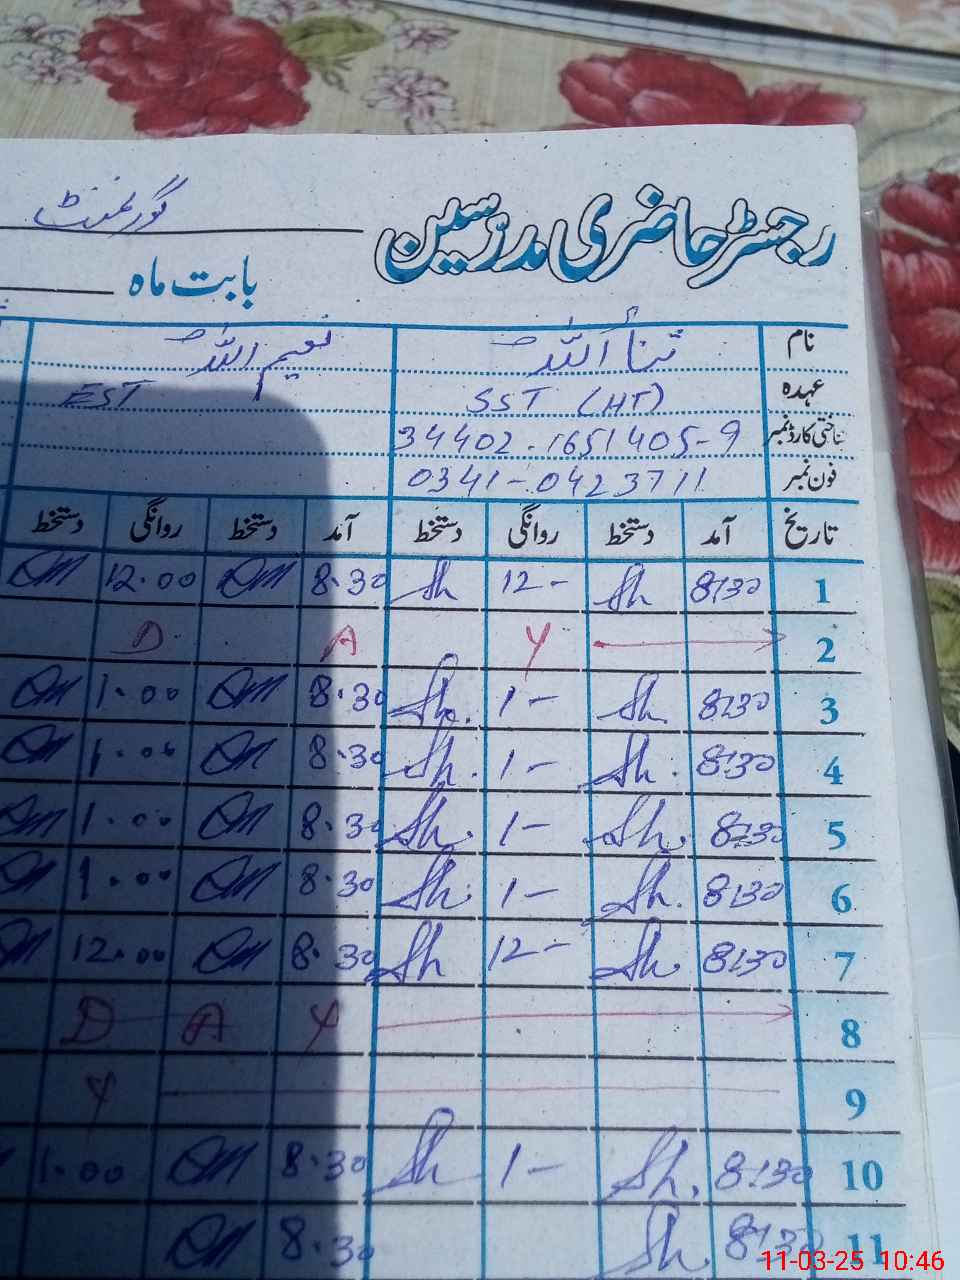 گورنمنٹ
رجسٹر حاضری مدرسین
بابت ماہ
نام ثناء اللہ نعیم اللہ
عہدہ SST (HT) EST
شناختی کارڈ نمبر 34402-1651405-9
فون نمبر 0341-0423711
تاریخ آمد دستخط روانگی دستخط آمد دستخط روانگی دستخط
1 8:30 Sh 12- Sh 8.30 12.00
2 Y A D
3 8:30 Sh. 1- Sh. 8.30 1.00
4 8:30 Sh. 1- Sh. 8.30 1.00
5 8:30 Sh. 1- Sh. 8.30 1.00
6 8:30 Sh. 1- Sh. 8.30 1.00
7 8:30 Sh. 12- Sh 8.30 12.00
8 Y A D
9 Y
10 8:30 Sh. 1- Sh 8.30 1.00
11 8:30 Sh. 8.30
11-03-25 10:46